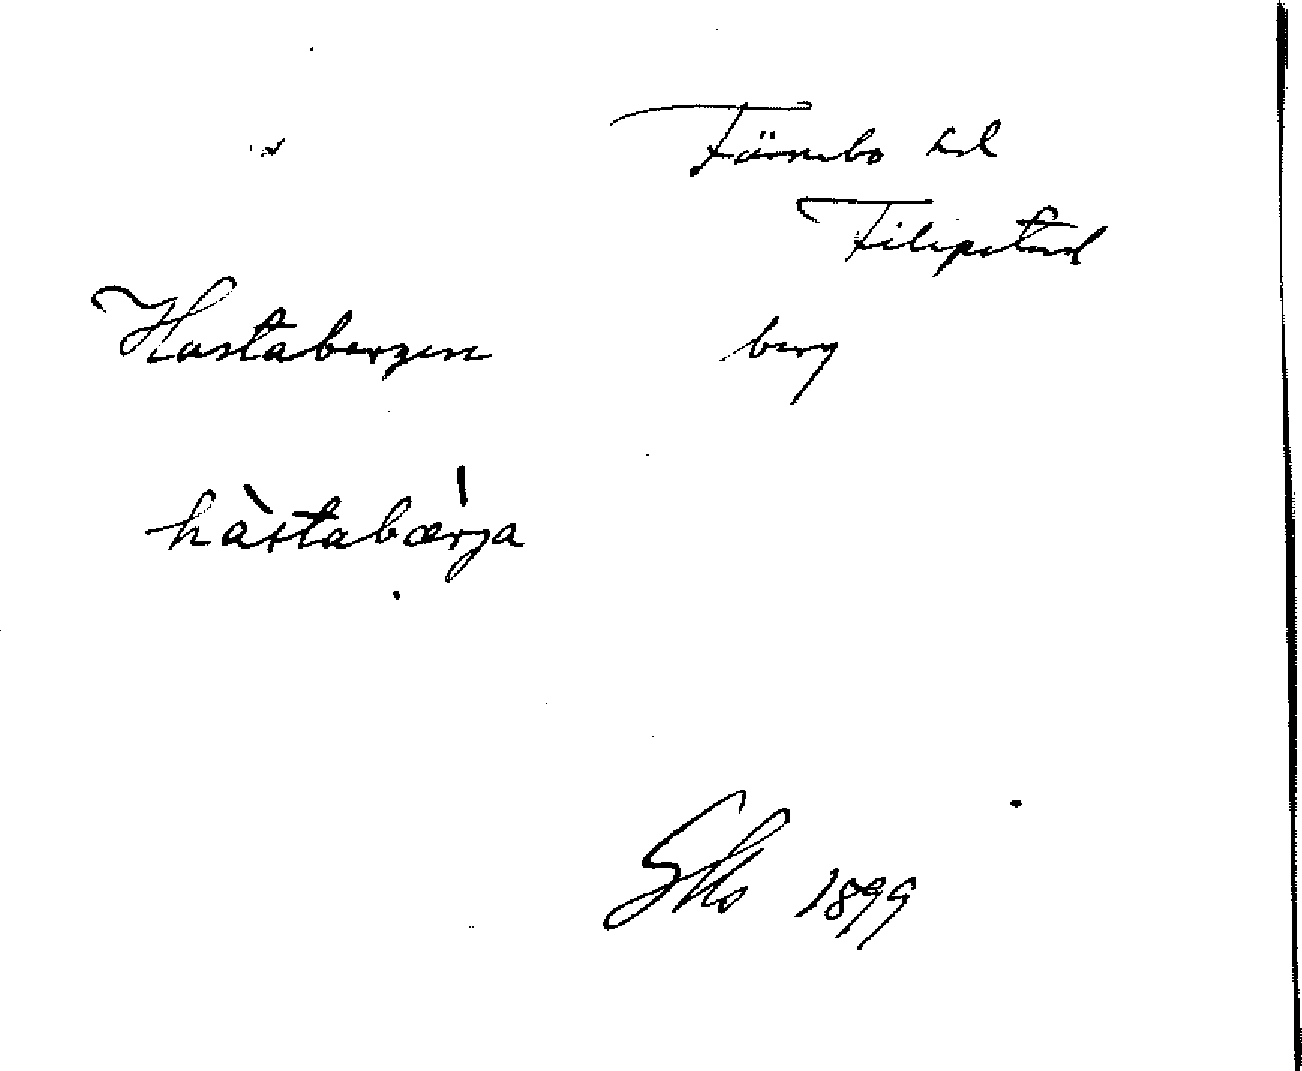 Färnebo hd
Filipstad
Hastabergen berg
hàstabærja
1899